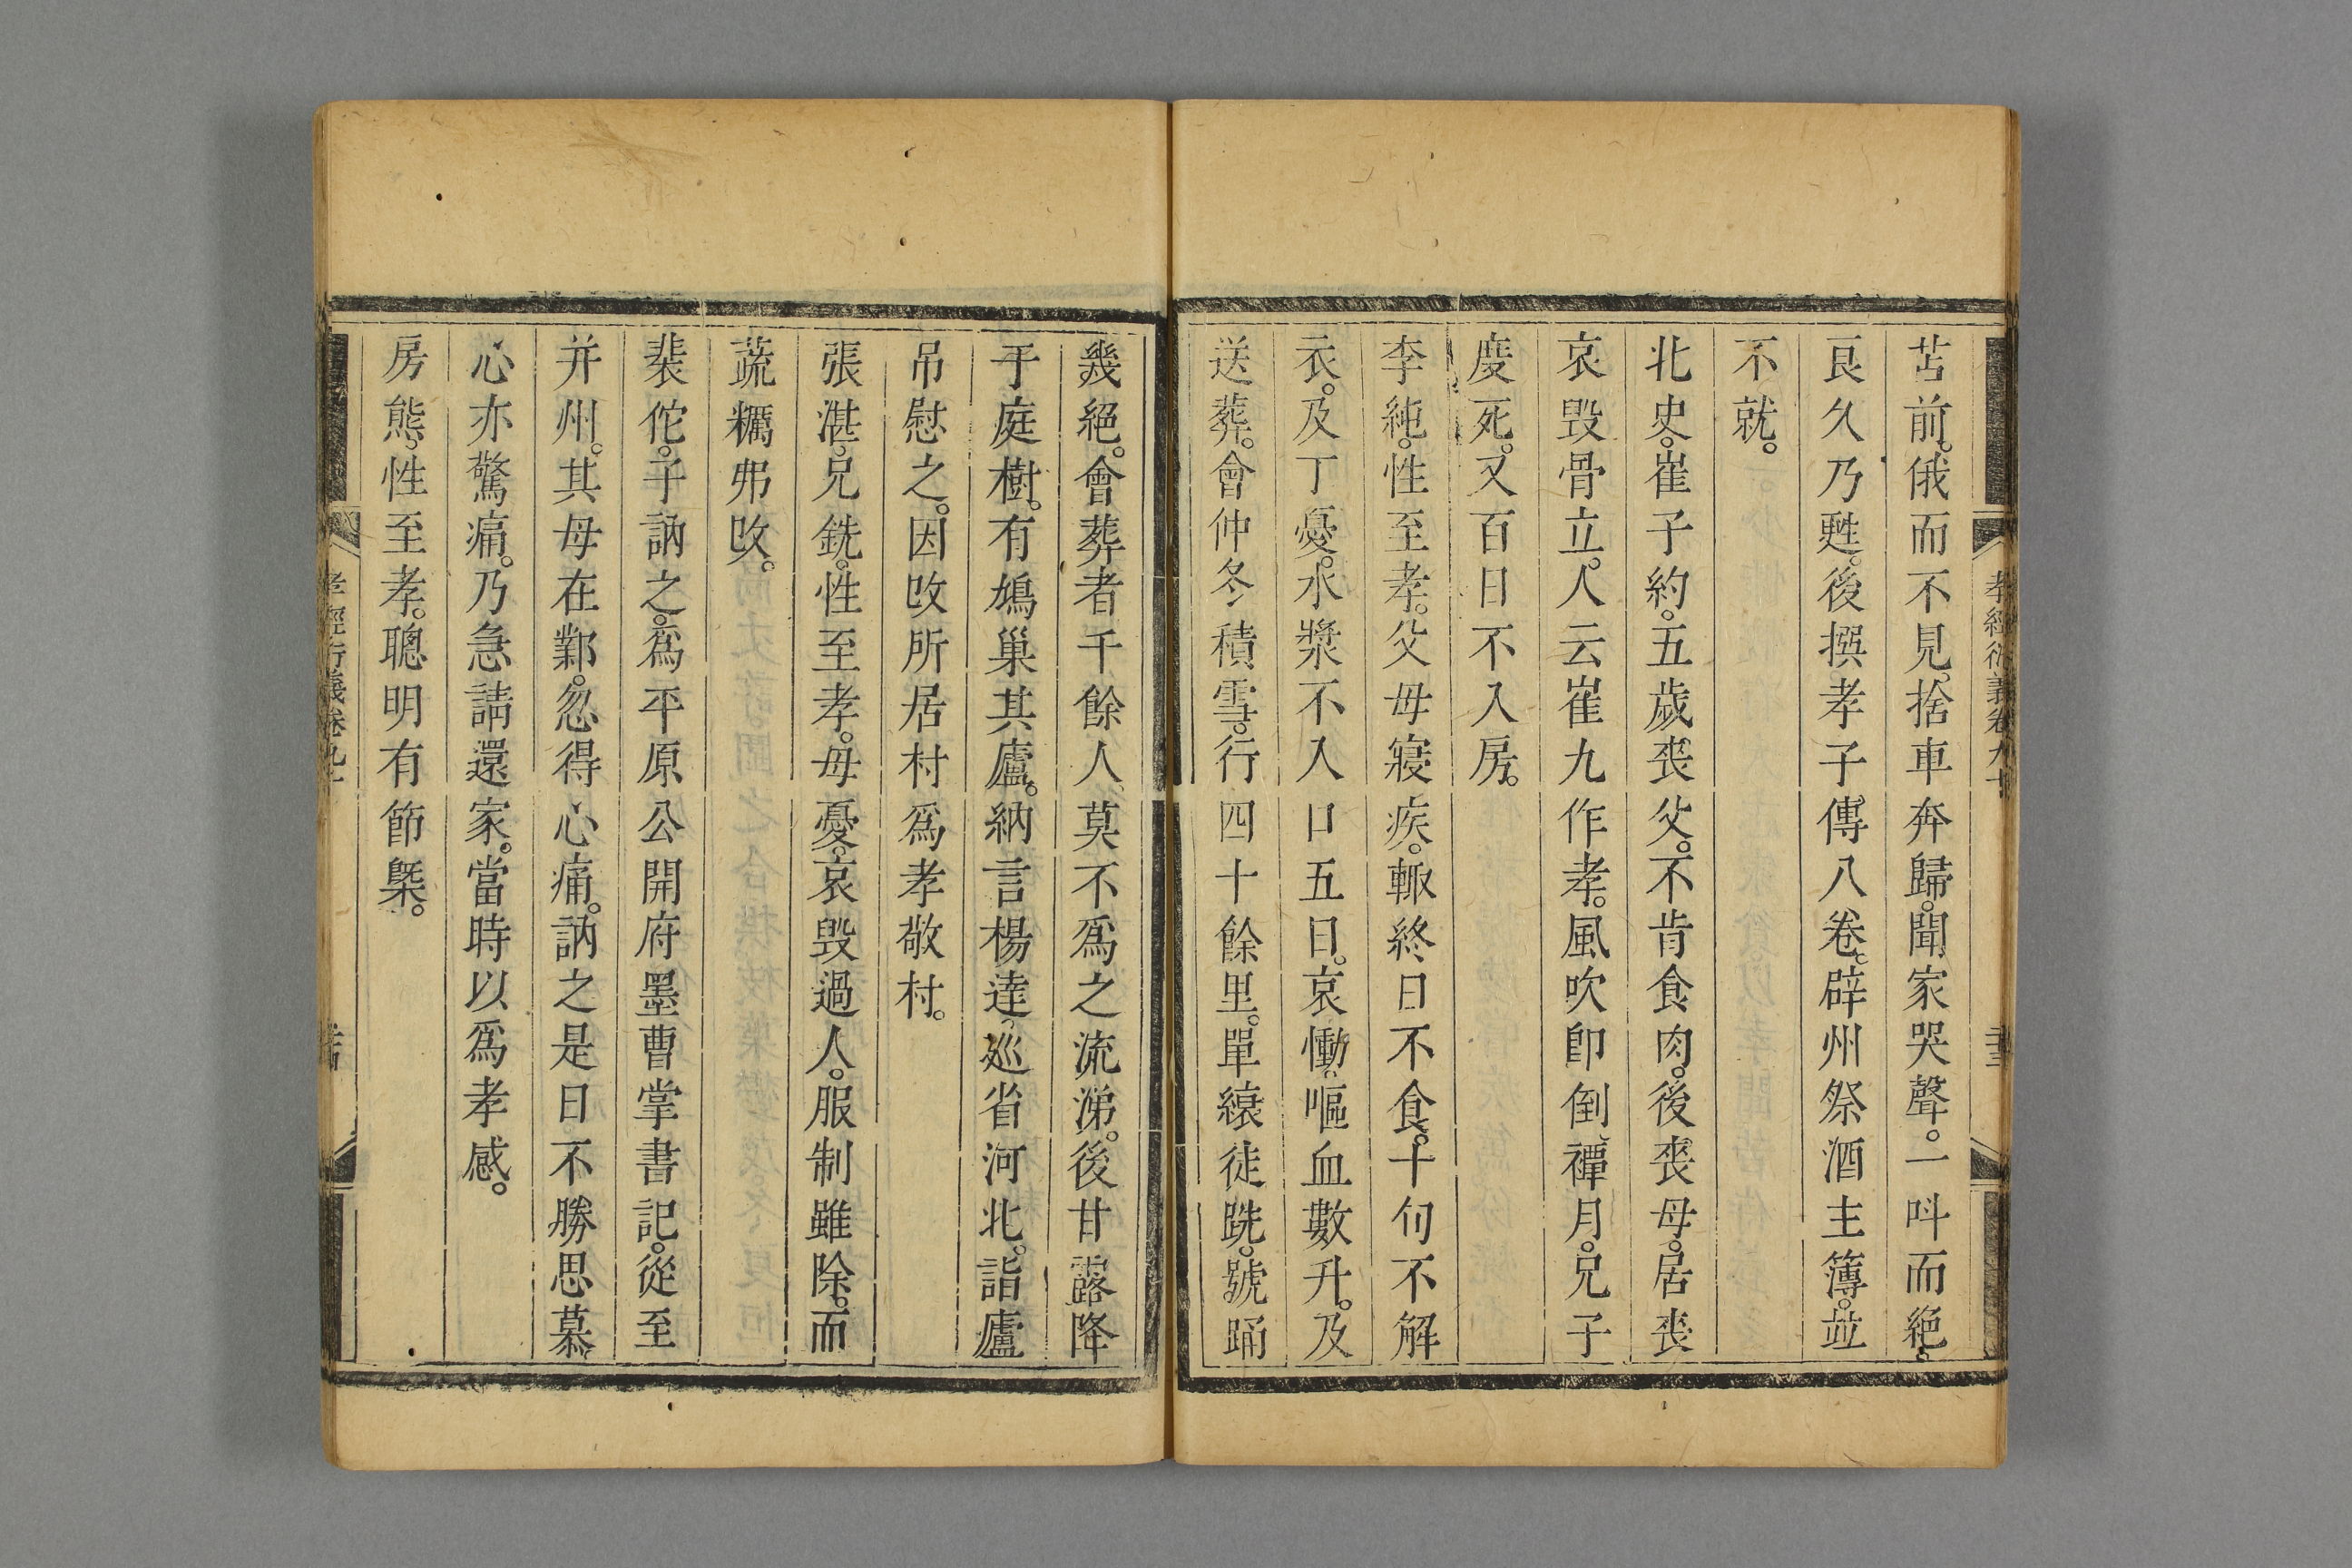 孝經衍義卷九十
苫前。俄而不見。捨車奔歸。聞家哭聲。一呌而絕。
良久乃甦。後撰孝子傳八卷。辟州祭酒主簿。並
不就。
北史。崔子約。五歲喪父。不肯食肉。後喪母。居喪
哀毀骨立。人云崔九作孝。風吹卽倒。禫月。兄子
度死。又百日不入房。
李純。性至孝。父母寢疾。輙終日不食。十旬不解
衣。及丁憂。水漿不入口五日。哀慟。嘔血數升。及
送葬。會仲冬積雪。行四十餘里。單縗徒跣。號踊
幾絕。會葬者千餘人、莫不爲之流涕。後甘露降
于庭樹。有鳩巢其廬。納言楊達、巡省河北。詣廬
吊慰之。因改所居村爲孝敬村。
張湛。兄銑。性至孝。母憂。哀毀過人。服制雖除。而
蔬糲弗改。
裴佗。子訥之。爲平原公開府墨曹掌書記。從至
并州。其母在鄴。忽得心痛。訥之是日不勝思慕。
心亦驚痛。乃急請還家。當時以爲孝感。
房熊。性至孝。聰明有節槩。
孝經衍義卷九十